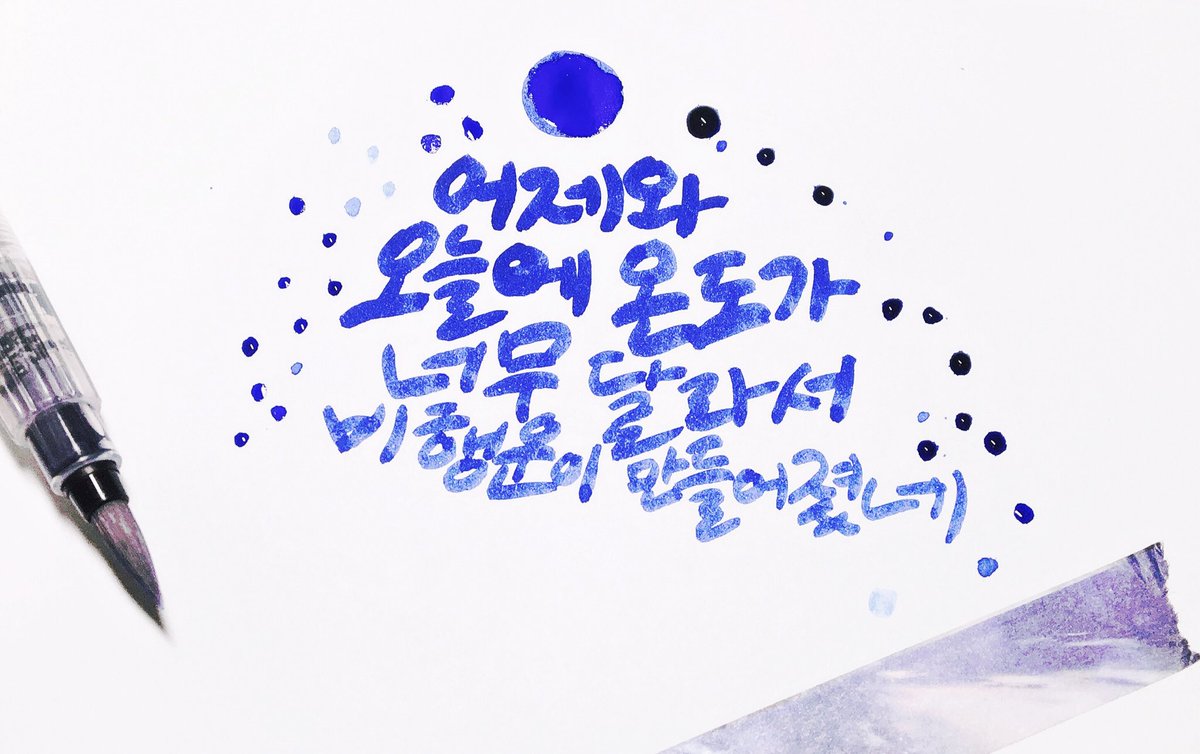 어제와
오늘에 온도가
너무 달라서
비행운이 만들어졌네